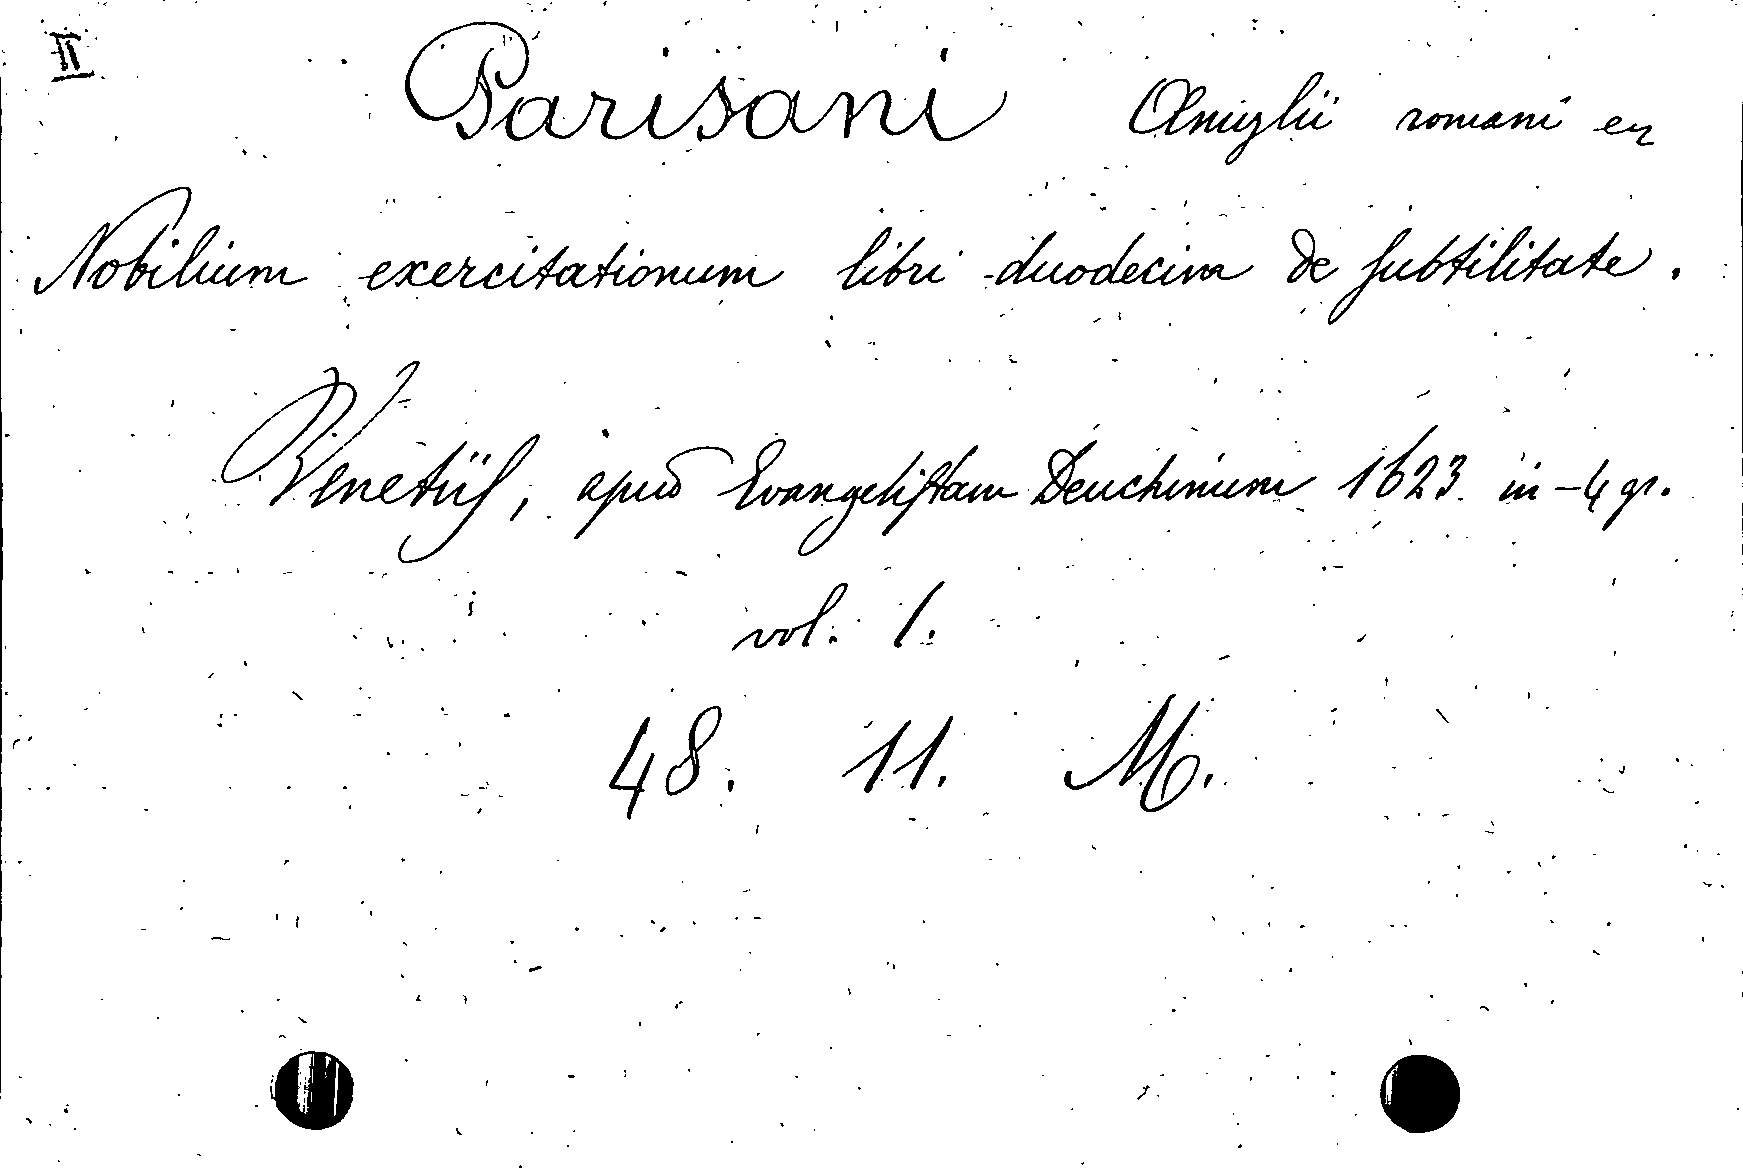 II
Parisani Æmiylii romani ex
Nobilium exercitationum libri duodecim de subtilitate.
Venetiis, apud Evangelistam Deuchinium 1623 in-4 gr.
vol. 1.
48. 11. M.